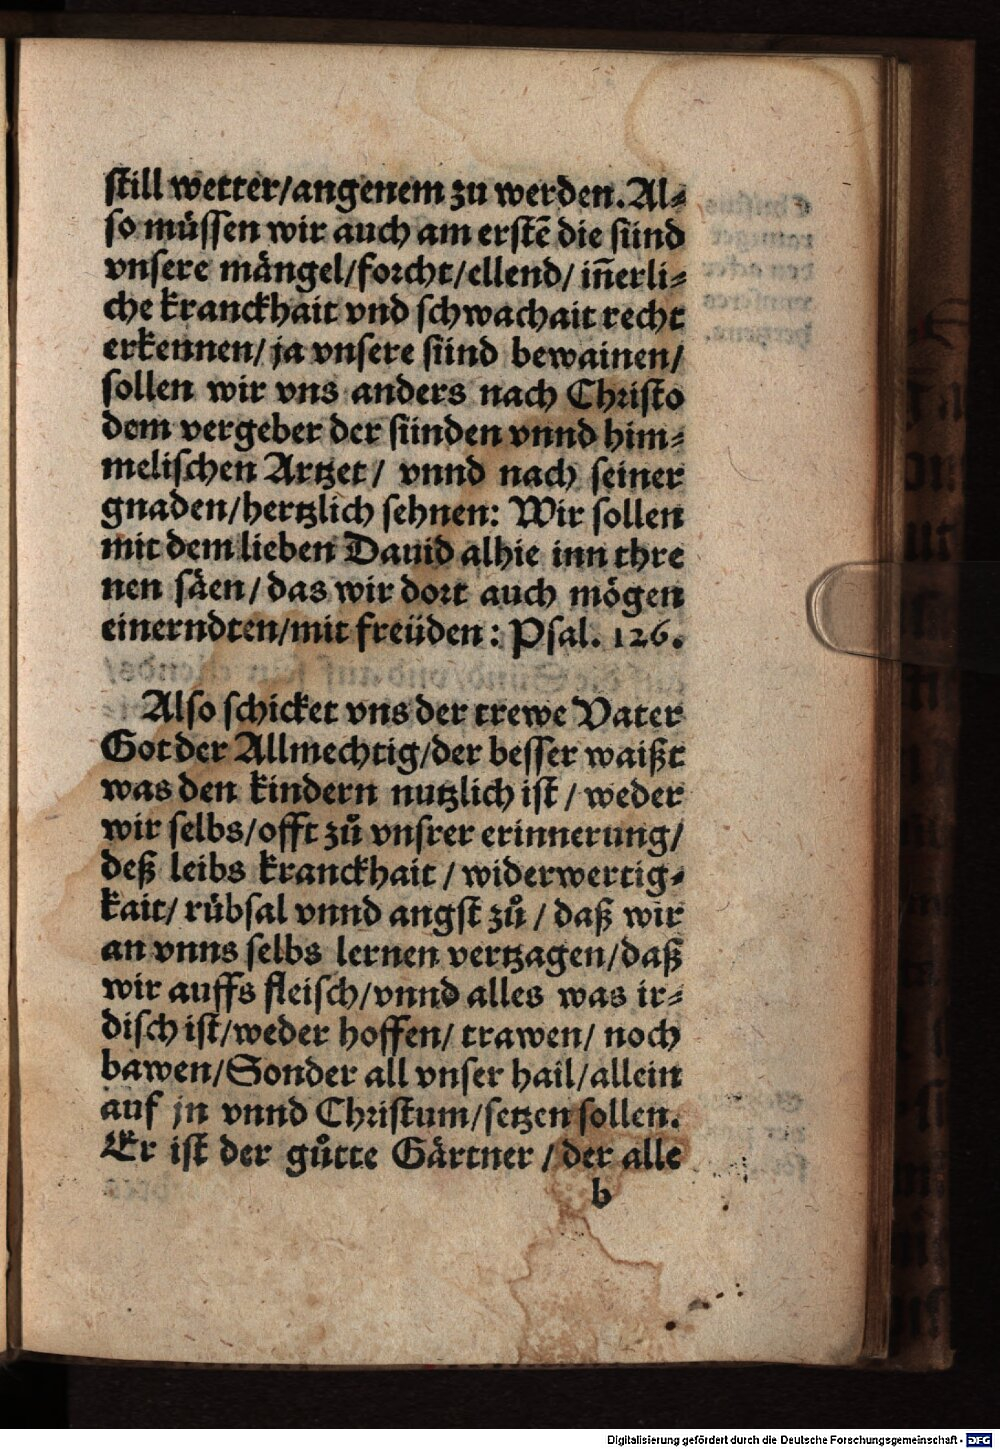 still wetter/angenem zu werden. Al⸗
so müssen wir auch am erstẽ die sünd
vnsere mängel/forcht/ellend/ iñerli⸗
che kranckhait vnd schwachait recht
erkennen/ ja vnsere sünd bewainen/
sollen wir vns anders nach Christo
dem vergeber der sünden vnnd him⸗
melischen Artzet/ vnnd nach seiner
gnaden/hertzlich sehnen: Wir sollen
mit dem lieben Dauid alhie inn thre
nen säen/ das wir dort auch mögen
einerndten/mit freüden: Psal. 126.
Also schicket vns der trewe Vater
Got der Allmechtig/der besser waißt
was den kindern nutzlich ist/ weder
wir selbs/offt zů vnsrer erinnerung/
deß leibs kranckhait/ widerwertig⸗
kait/ rübsal vnnd angst zů/ daß wir
an vnns selbs lernen vertzagen/daß
wir auffs fleisch/vnnd alles was ir⸗
disch ist/weder hoffen/ trawen/ noch
bawen/Sonder all vnser hail/allein
auf jn vnnd Christum/setzen sollen.
Er ist der gůtte Gärtner/ der alle
b
Digitalisierung gefördert durch die Deutsche Forschungsgemeinschaft - DFG